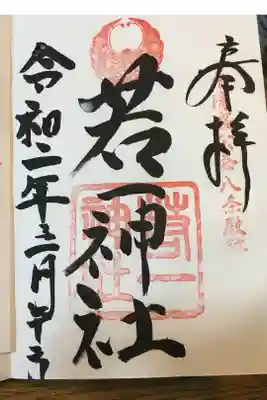 奉拝
八条殿跡
若一神社
若一
神社
令和二年三月